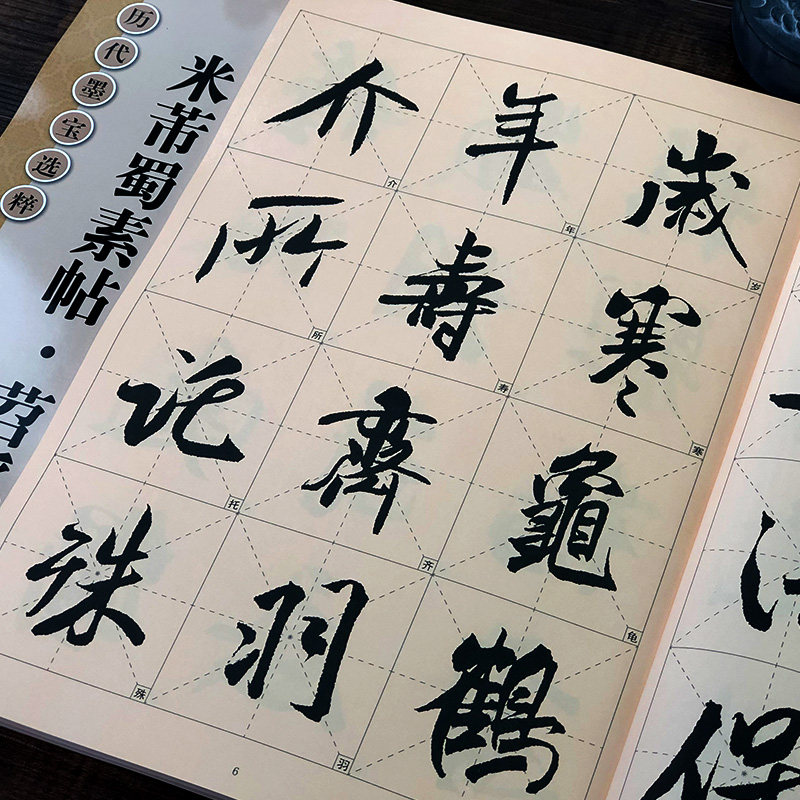 历代墨宝选粹
米芾蜀素帖·苕
歲寒龜鶴
岁寒龟
年壽齊羽
年寿齐羽
介所託殊
介所托殊
6
保